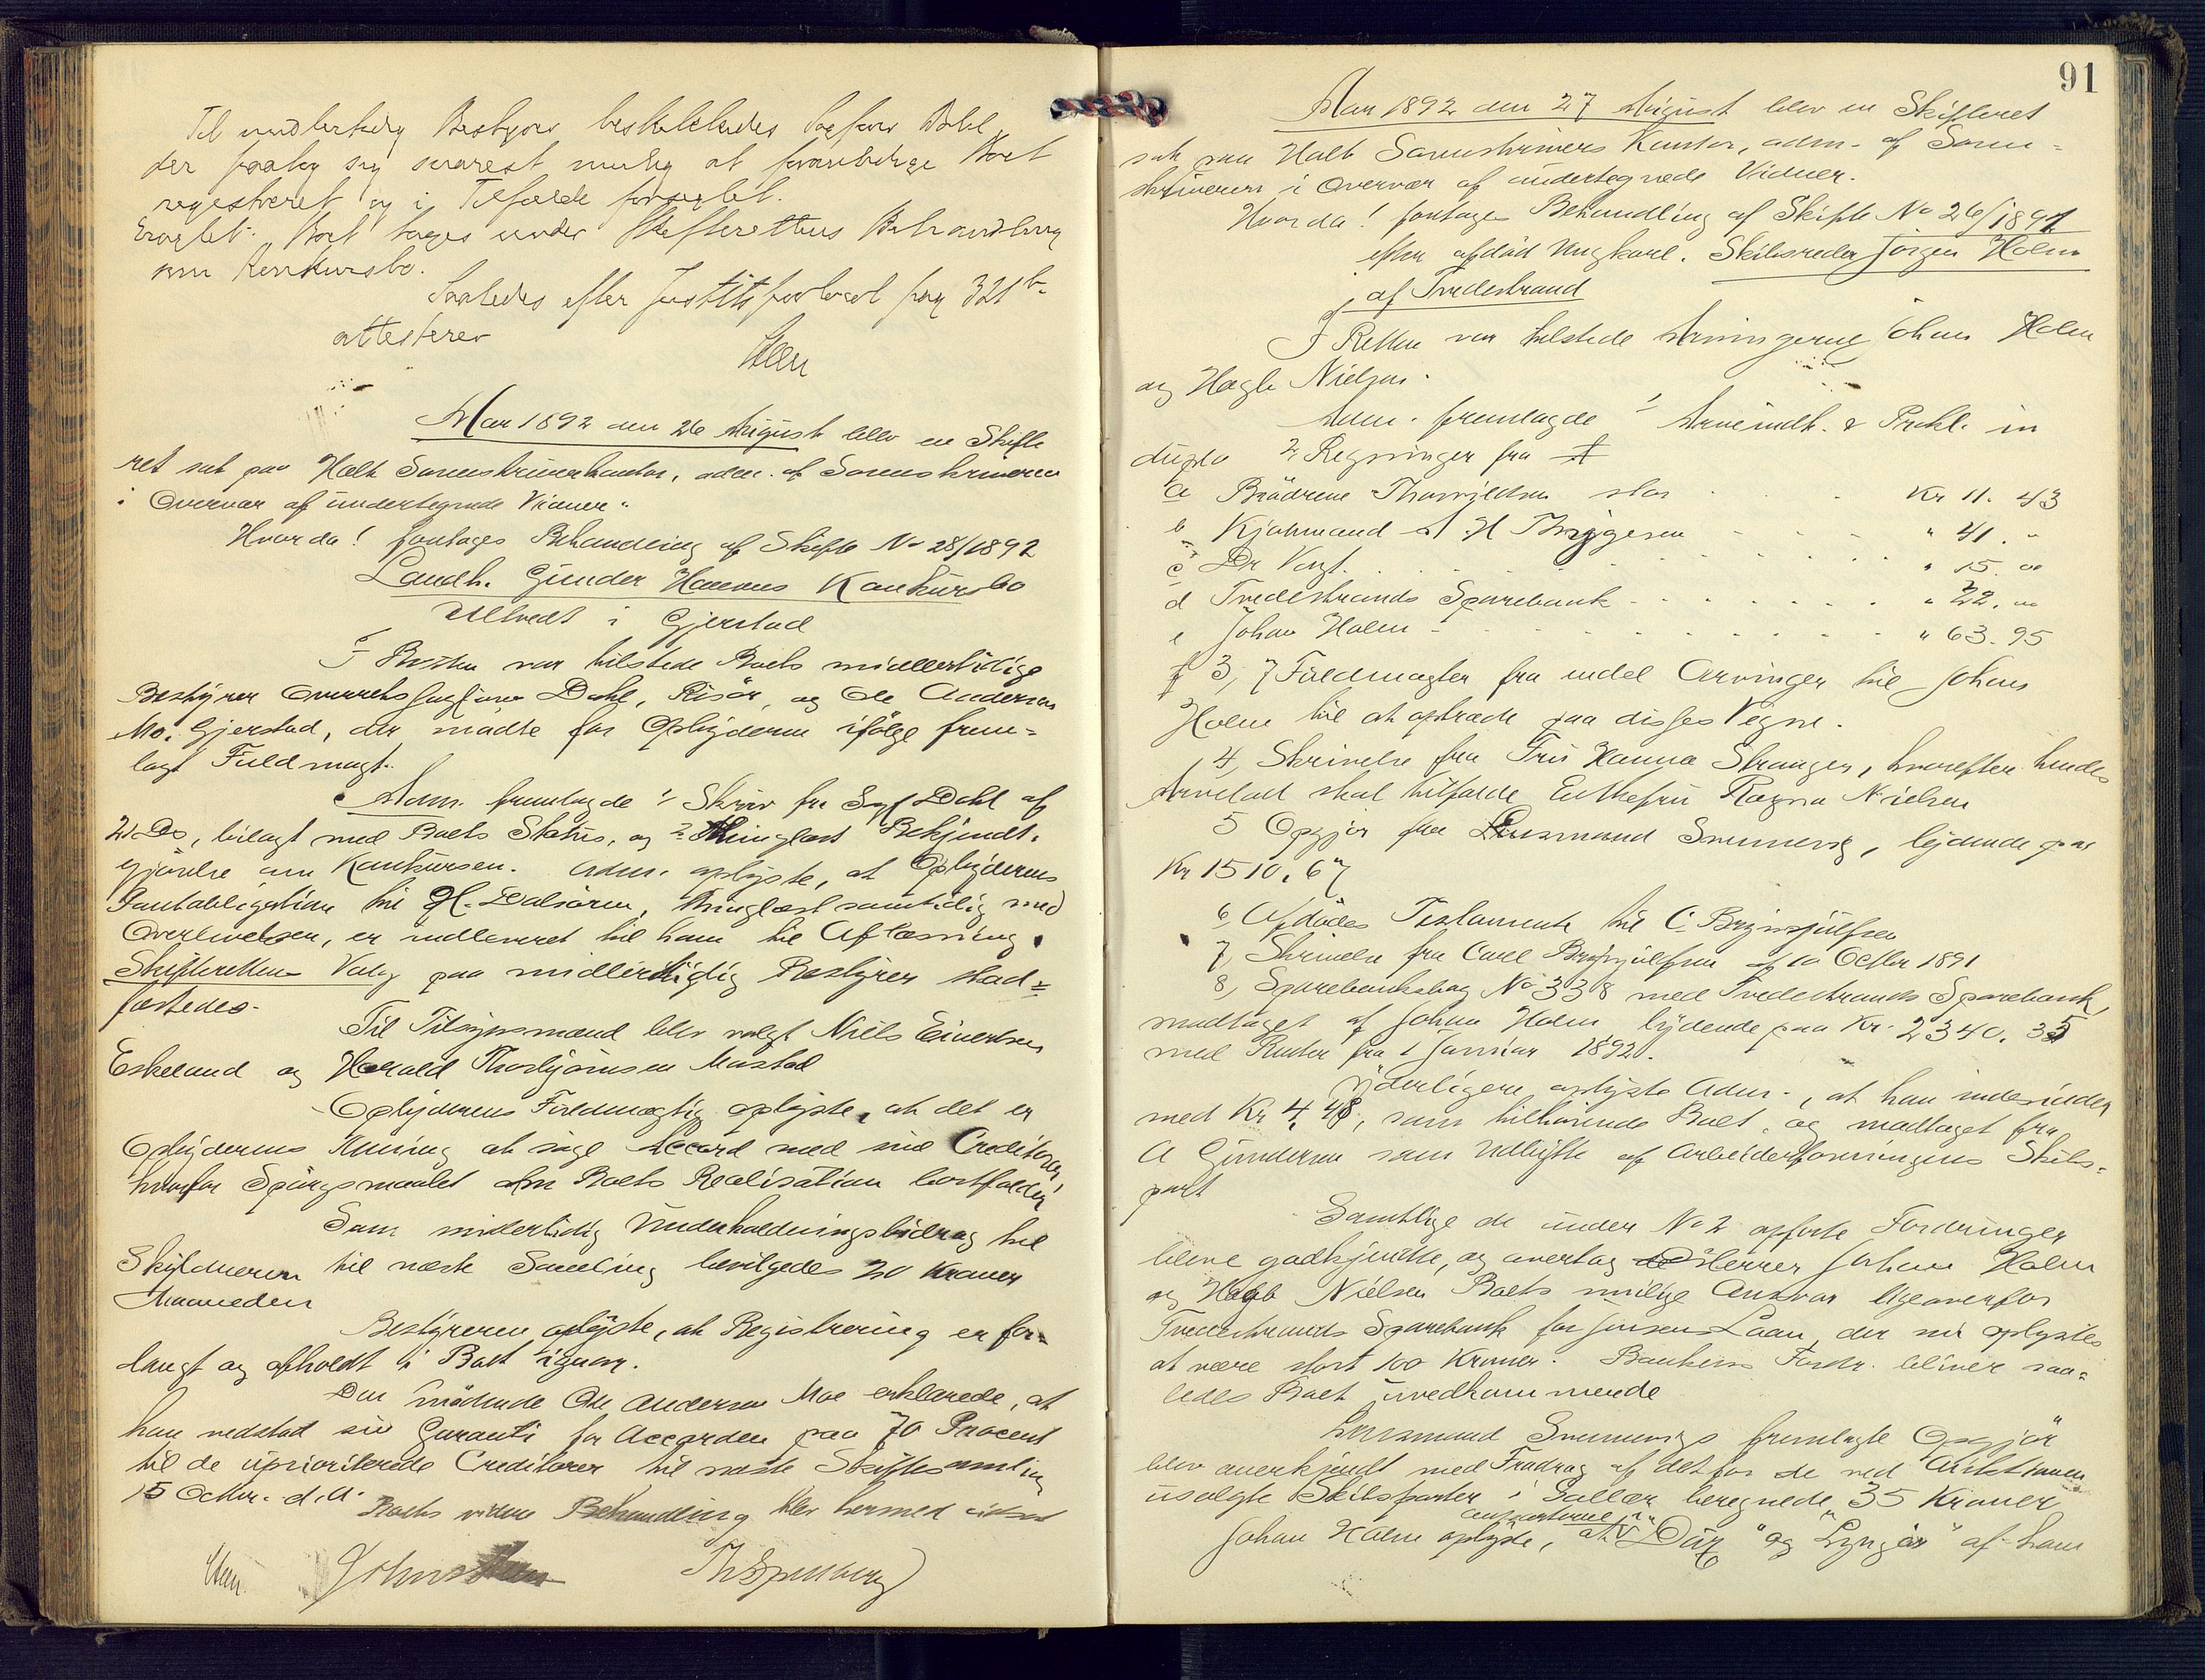 Til midlertidig Bestyrer beskikkedes Sagfører Dahl,
der paatog sig snarest mulig at foranledige Boet
registreret og i Tilfælde forseglet.
Eragtet: Boet tages under Skifterettens Behandling
som Konkursbo.
Saaledes efter Justitsprotocol pag 321 b.
attesterer
Aar 1892 den 26 August blev en Skifte
ret sat paa Holt Sorenskriverkontor, adm. af Sorenskriveren
i Overvær af undertegnede Vidner.
Hvorda! foretages Behandling af Skifte No 28/1892
Landh. Gunder Hansens Konkursbo
Ulltvedt i Gjerstad
I Retten var tilstede Boets midlertidige
Bestyrer Overretssagfører Dahl, Risør, og Ole Andersen
Mo, Gjerstad, der mødte for Opbyderen ifølge frem=
lagt Fuldmagt.
Adm. fremlagde 1, Skriv fra Sagf Dahl af
24 Ds, bilagt med Boets Status, og 2 thinglæst Bekjendt-
gjørelse om Konkursen. Adm. oplyste, at Opbyderens
Pantobligation til H. Dalsøren, thinglæst samtidig med
Overleverelsen, er indleveret til ham til Aflæsning.
Skifteretten Valg paa midlertidig Bestyrer stad=
fæstedes.
Til Tilsynsmænd blev valgt Niels Einersen
Eskeland og Harald Thorbjørnsen Mostad
Opbyderens Fuldmægtig oplyste, at det er
Opbyderens Mening at søge Accord med sine Creditorer
hvorfor Spørgsmaalet om Boets Realisation bortfalder
Som midlertidig Underholdningsbidrag til
Skyldneren til næste Samling bevilgedes 20 Kroner
Maaneden
Bestyreren oplyste, at Registrering er for=
langt og afholdt i Boet igaar.
Den mødende Ole Andersen Moe erklærede, at
han vedstod sin Garanti for Accorden paa 70 Procent
til de uprioriterede Creditorer til næste Skiftesamling
15 Octbr. d. A.
Boets videre Behandling blev hermed udsat
91
Aar 1892 den 27 August blev en Skifteret
sat paa Holt Sorenskrivers Kontor, adm. af Soren=
skriveren i Overvær af undertegnede Vidner.
Hvorda! foretages Behandling af Skifte No 26/1891
efter afdød Ungkarl. Skibsreder Jørgen Holm
af Tvedestrand
I Retten var tilstede Arvingerne Johan Holm
og Hagb Nielsen.
Adm. fremlagde 1 Arveindk. & Prokl. in
duplo 2, Regninger fra
a Brødrene Thorvildsen stor Kr 11. 43
b Kjøbmand A H Thrygesen " 41. "
c Dr Vogt. " 15. "
d Tvedestrands Sparebank " 22. "
e Johan Holm " 63. 95
3, 7 Fuldmagter fra endel Arvinger til Johan
Holm til at optræde paa disses Vegne.
4, Skrivelse fra Fru Hanna Stranger, hvorefter hendes
Arvelod skal tilfalde Enkefru Ragna Nielsen
5 Opgjør fra Lensmand Svennevig, lydende paa
Kr 1510. 67
6, Afdødes Testamente til C. Brynjulfsen
7, Skrivelse fra Carl Brynjulfsen af 10 Octbr 1891
8, Sparebanksbog No 338 med Tvedestrands Sparebank,
modtaget af Johan Holm lydende paa Kr. 2340. 35
med Renter fra 1 Januar 1892.
Yderligere oplyste Adm., at han indesidder
med Kr 4. 48, som tilhørende Boet, og modtaget fra
A Gundersen som Udbytte af Arbeiderforeningens Skibs=
part
Samtlige de under No 2 opførte Fordringer
bleve godkjendte, og overtog Herrer Johan Holm
og Hagb Nielsen Boets mulige Ansvar ligeoverfor
Tvedestrands Sparebank for Jensens Laan, der nu oplystes
at være stort 100 Kroner. Bankens Fordr. bliver saa=
ledes Boet uvedkommende
Lensmand Svennevigs fremlagte Opgjør
blev anerkjendt med Fradrag af det for de ved Auktionen
usolgte Skibsparter i Sallær beregnede 35 Kroner
Johan Holm oplyste, at i "Dux" og "Lyngør" af ham